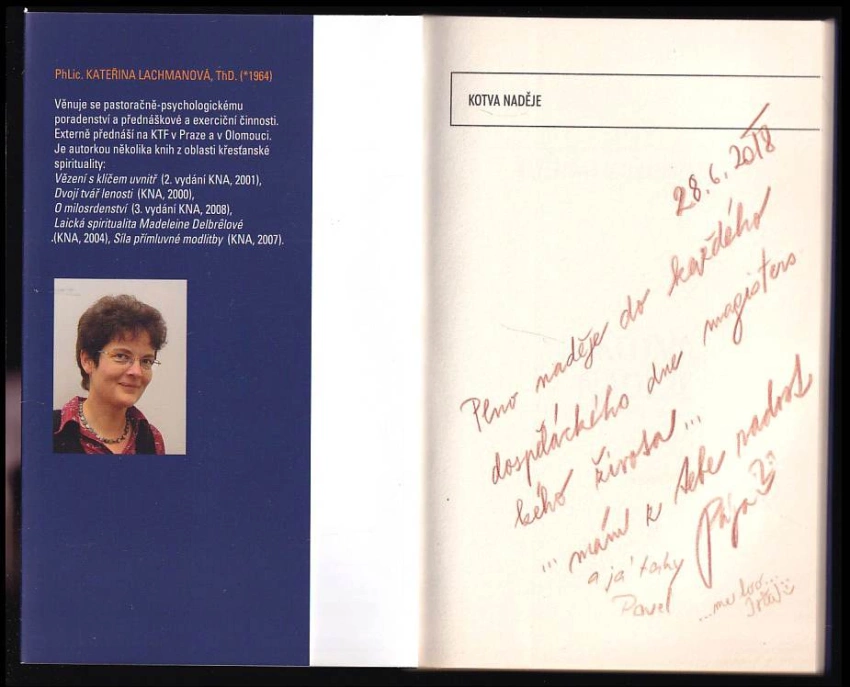 PhLic. KATEŘINA LACHMANOVÁ, ThD. (*1964)
Věnuje se pastoračně-psychologickému
poradenství a přednáškové a exerciční činnosti.
Externě přednáší na KTF v Praze a v Olomouci.
Je autorkou několika knih z oblasti křesťanské
spirituality:
Vězení s klíčem uvnitř (2. vydání KNA, 2001),
Dvojí tvář lenosti (KNA, 2000),
O milosrdenství (3. vydání KNA, 2008),
Laická spiritualita Madeleine Delbrêlové
(KNA, 2004), Síla přímluvné modlitby (KNA, 2007).
KOTVA NADĚJE
28.6.2018
Plno naděje do každého
dospěláckého dne magisters
kého života...
... mám z tebe radost
Pája
a já taky
Pavel